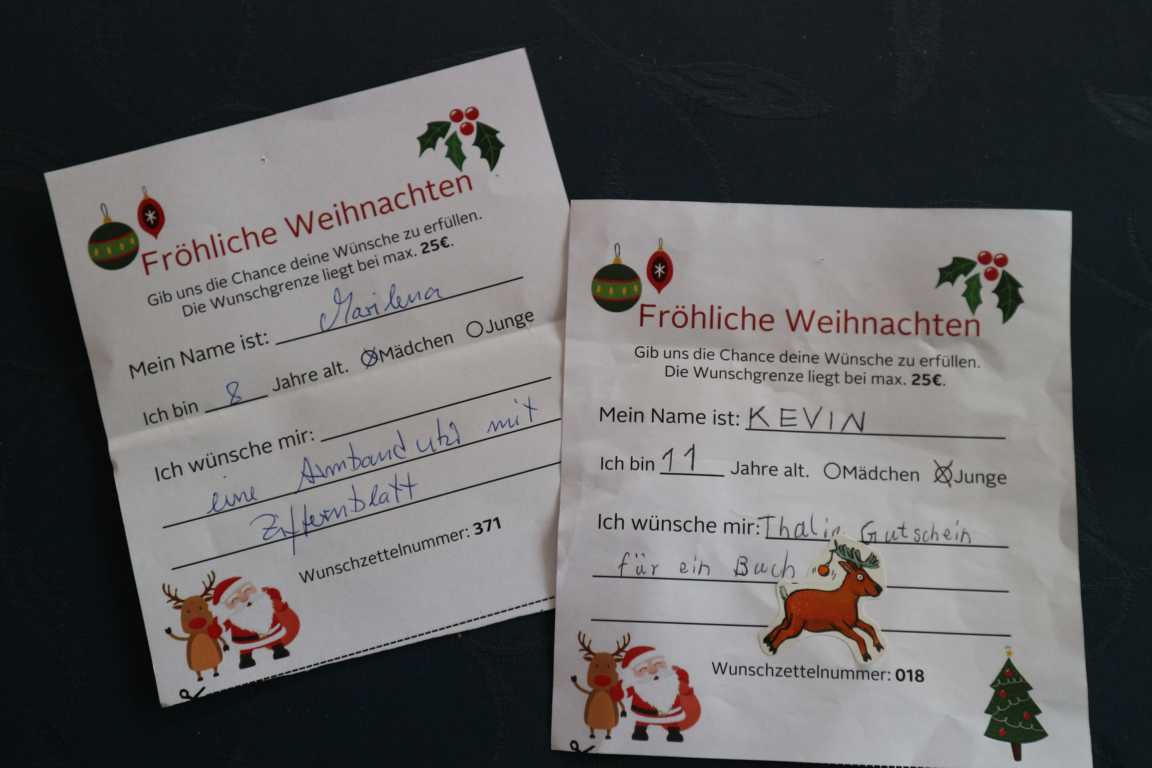 Fröhliche Weihnachten
Gib uns die Chance deine Wünsche zu erfüllen.
Die Wunschgrenze liegt bei max. 25€.
Mein Name ist: Marilena
Ich bin 8 Jahre alt. Mädchen Junge
Ich wünsche mir:
eine Armbanduhr mit
Ziffernblatt
Wunschzettelnummer: 371
Fröhliche Weihnachten
Gib uns die Chance deine Wünsche zu erfüllen.
Die Wunschgrenze liegt bei max. 25€.
Mein Name ist: KEVIN
Ich bin 11 Jahre alt. Mädchen Junge
Ich wünsche mir: Thalia Gutschein
für ein Buch
Wunschzettelnummer: 018